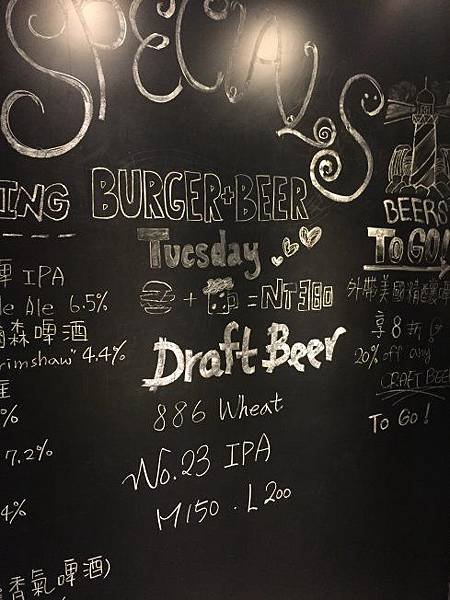 SPECIALS
ING
IPA
le Ale 6.5%
森啤酒
rimshaw" 4.4%
%
7.2%
4%
香氣啤酒)
BURGER+BEER
Tuesday
+ = NT360
Draft Beer
886 Wheat
No.23 IPA
M150 . L200
BEERS
TO GO!
外帶美國精釀啤
享8折!
20% off any
CRAFT BEER
To Go!